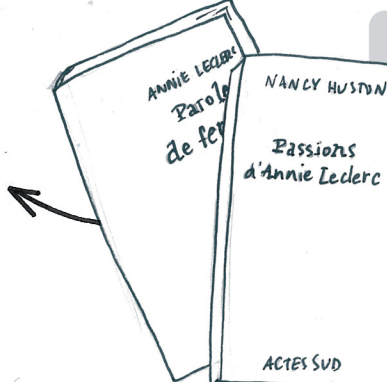 ANNIE LECLERC
Parole
de fem
NANCY HUSTON
Passions
d'Annie Leclerc
ACTES SUD